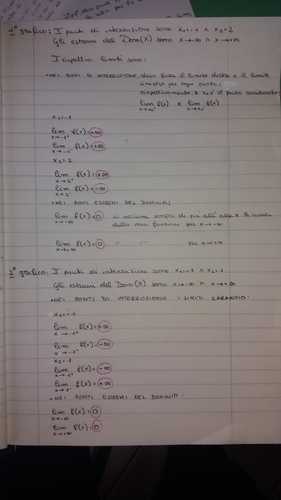 1° grafico: I punti di interruzione sono x₁=-1 ∧ x₂=2
Gli estremi del Dom(X) sono x→-∞ ∧ x→+∞
I rispettivi limiti sono:
•NEI PONTI DI INTERRUZIONE, devo fare il limite destro e il limite
sinistro per ogni punto,
rispettivamente, x₀ è il punto considerato:
lim f(x) e lim f(x)
x₁=-1
lim f(x)=+∞
x→-1⁺
lim f(x)=+∞
x→-1⁻
x₂=2
lim f(x)=+∞
x→2⁺
lim f(x)=-∞
x→2⁻
•NEI PONTI ESTREMI DEL DOMINIO:
lim f(x)=0 si avvicina sempre di più all'asse x la curva
x→-∞ della mia funzione per x→-∞
lim f(x)=0 " " per x→+∞
x→+∞
2° grafico: I punti di interruzione sono x₁=-1 ∧ x₂=1
Gli estremi del Dom(X) sono x→-∞ ∧ x→+∞
•NEI PONTI DI INTERRUZIONE I LIMITI SARANNO:
x₁=-1
lim f(x)=+∞
x→-1⁺
lim f(x)=-∞
x→-1⁻
x₂=1
lim f(x)=-∞
x→1⁺
lim f(x)=+∞
x→1⁻
•NEI PONTI ESTREMI DEL DOMINIO:
lim f(x)=0
x→-∞
lim f(x)=0
x→+∞